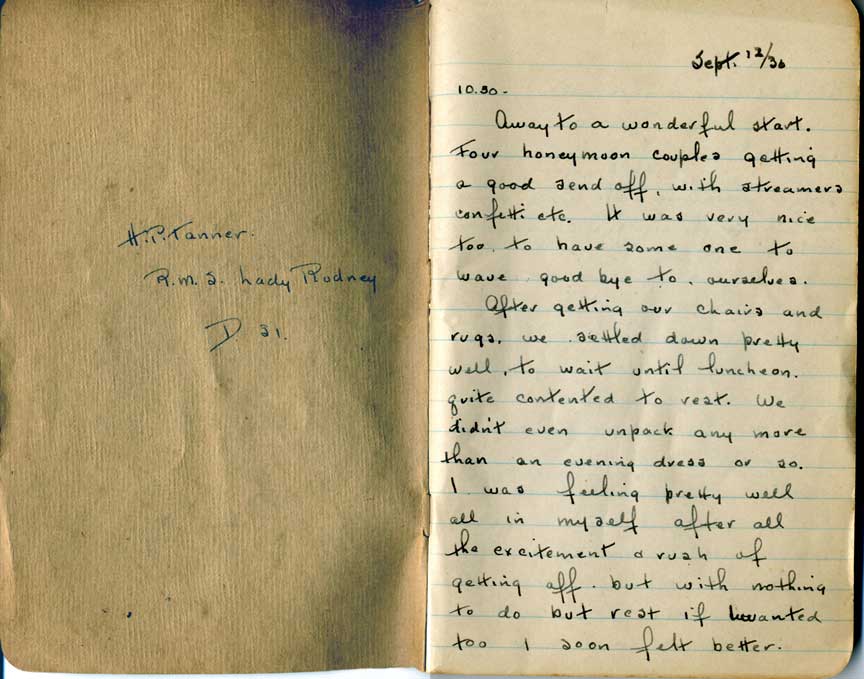 H.P. Tanner.
R.M.S. Lady Rodney
D 31.
Sept. 12/36
10.30 -
Away to a wonderful start.
Four honeymoon couples getting
a good send off, with streamers
confetti etc. It was very nice
too, to have some one to
wave good bye to, ourselves.
After getting our chairs and
rugs, we settled down pretty
well, to wait until luncheon.
quite contented to rest. We
didn't even unpack any more
than an evening dress or so.
I was feeling pretty well
all in myself after all
the excitement & rush of
getting off. but with nothing
to do but rest if wanted
too I soon felt better.